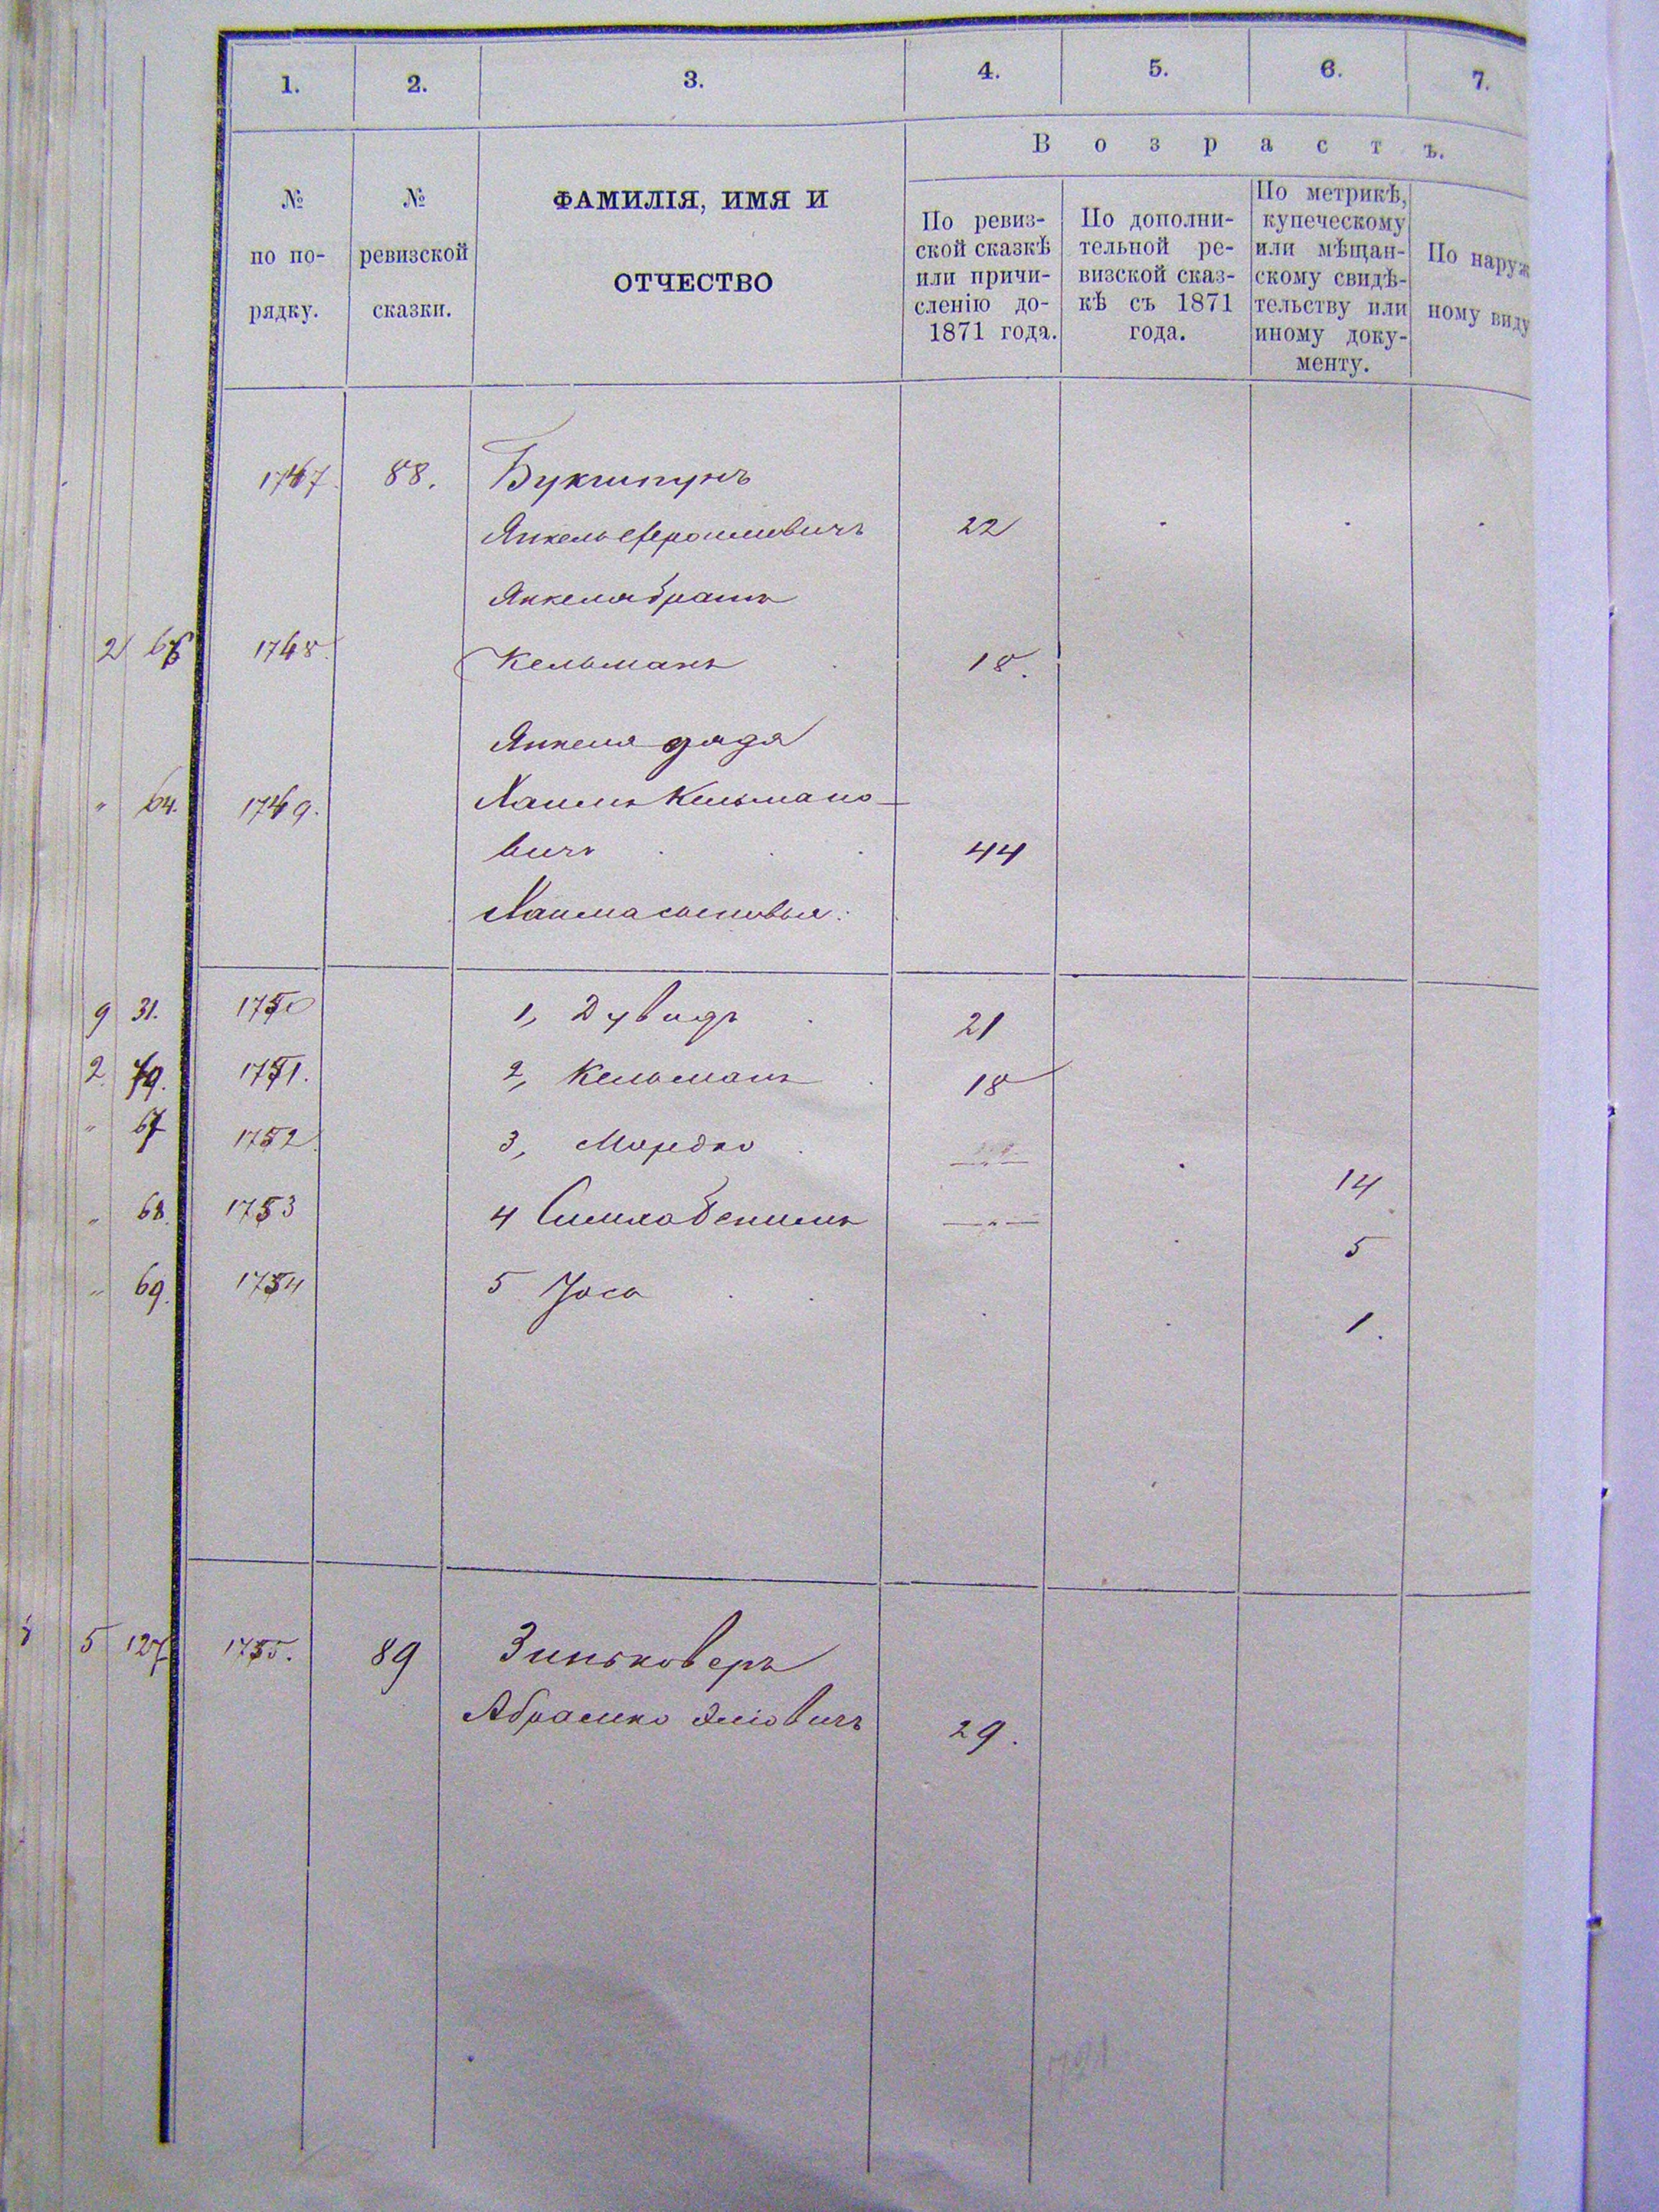 1. 2. 3. 4. 5. 6. 7.
Возрастъ.
№
по по-
рядку.
№
ревизской
сказки.
ФАМИЛІЯ, ИМЯ И
ОТЧЕСТВО
По ревиз-
ской сказкѣ
или причи-
сленію до-
1871 года.
По дополни-
тельной ре-
визской сказ-
кѣ съ 1871
года.
По метрикѣ,
купеческому
или мѣщан-
скому свидѣ-
тельству или
иному доку-
менту.
По наруж
ному виду
1747. 88. Букштунъ
Янкель 22
Янкеля братъ
2 1748. Кельманъ 18.
Янкеля дядя
" 64. 1749. Хаимъ Кельмано-
вичъ 44
Хаима сыновья:
9 31. 1750 1, Дувидъ 21
2. 79. 1751. 2, Кельманъ 18
" 67 1752. 3, Мордко — " — 14
" 68. 1753 4 Симха Бениминъ — " — 5
" 69. 1754 5 Іосъ 1.
5 127 1755. 89 Зиньковеръ
Абрамко Эліовичъ 29.